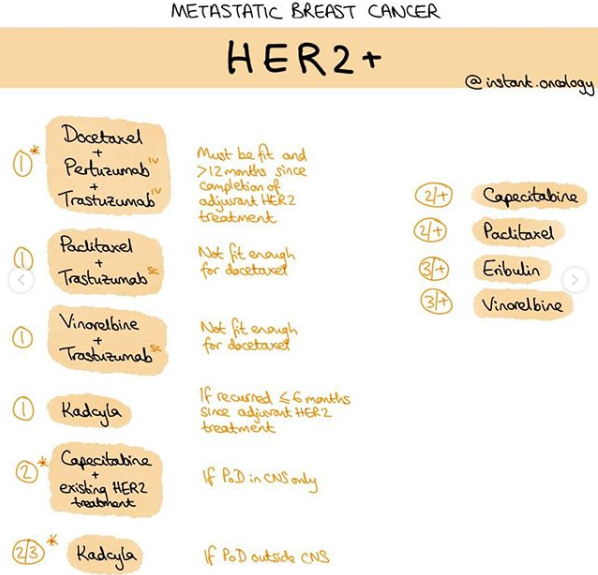 METASTATIC BREAST CANCER
HER2+
@instant.oncology
1*
Docetaxel
+
Pertuzumab IV
+
Trastuzumab IV
Must be fit and
>12 months since
completion of
adjuvant HER2
treatment
1
Paclitaxel
+
Trastuzumab SC
Not fit enough
for docetaxel
1
Vinorelbine
+
Trastuzumab SC
Not fit enough
for docetaxel
1
Kadcyla
If recurred ≤6 months
since adjuvant HER2
treatment
2*
Capecitabine
+
existing HER2
treatment
If PoD in CNS only
2/3*
Kadcyla
If PoD outside CNS
2/+ Capecitabine
2/+ Paclitaxel
3/+ Eribulin
3/+ Vinorelbine